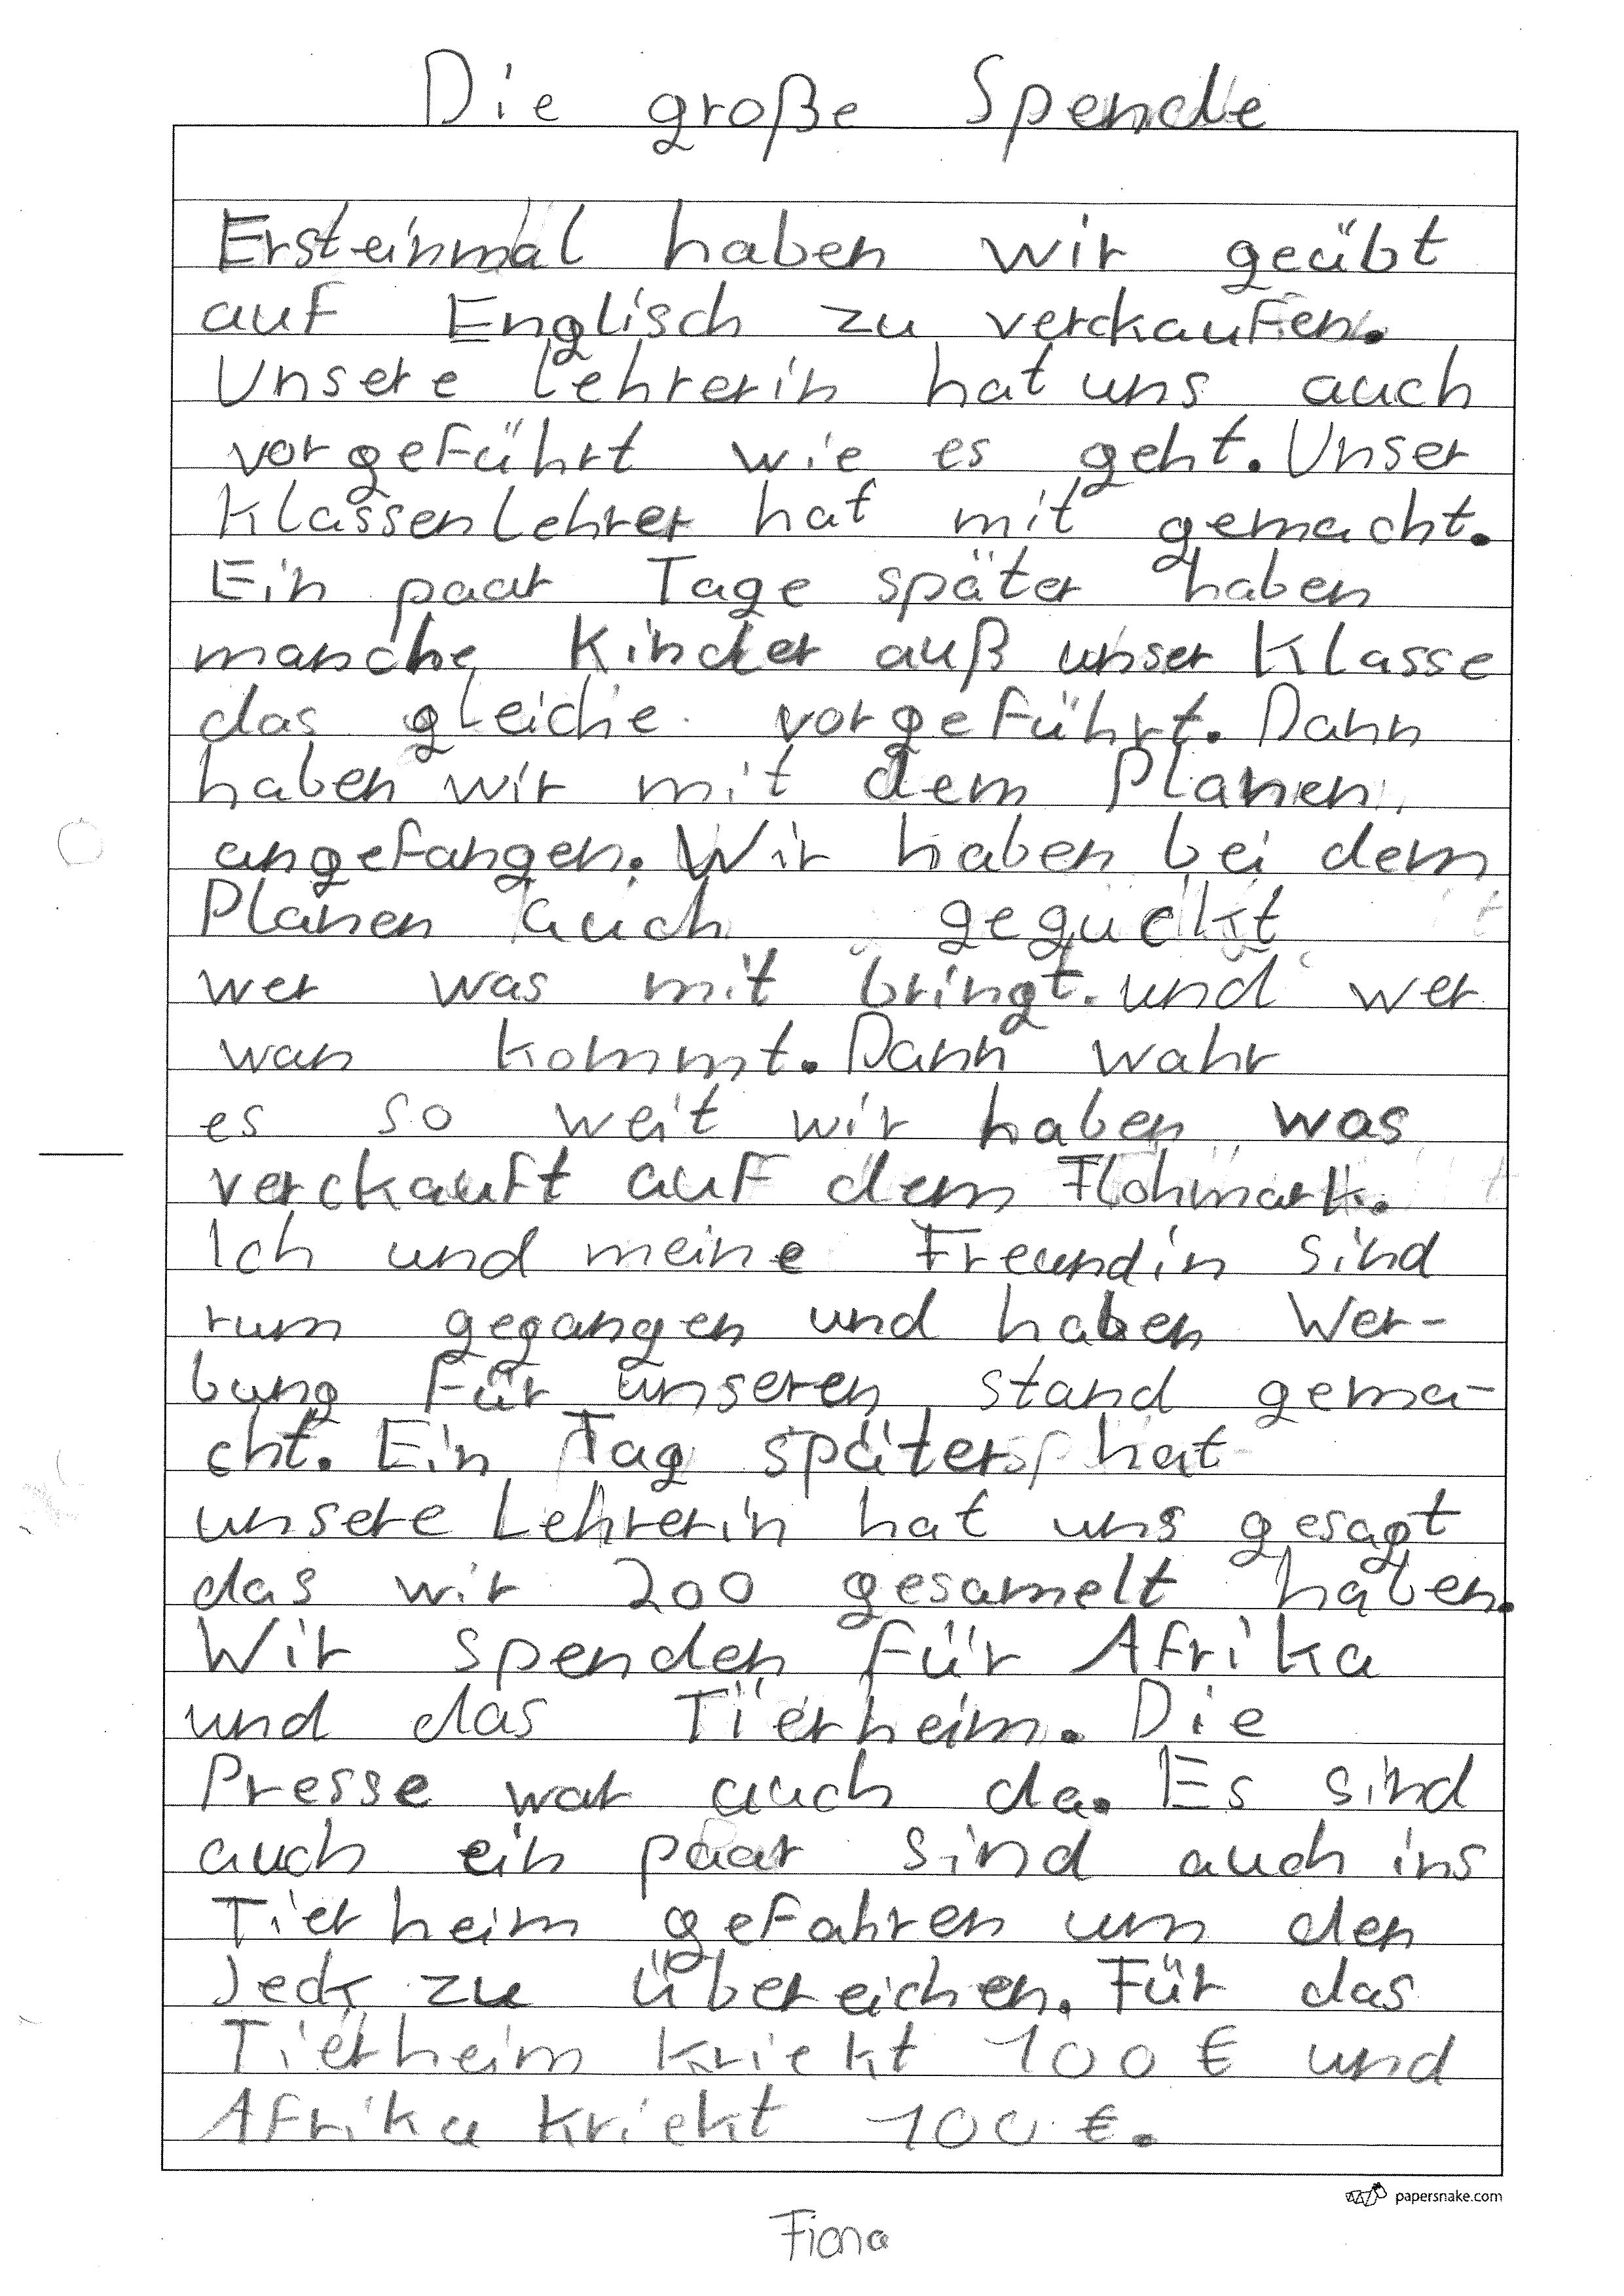 Die große Spende
Ersteinmal haben wir geübt
auf Englisch zu verckaufen.
Unsere lehrerin hat uns auch
vorgeführt wie es geht. Unser
Klassenlehrer hat mit gemacht.
Ein paar Tage später haben
manche Kinder auß unser Klasse
das gleiche vorgeführt. Dann
haben wir mit dem Planen
angefangen. Wir haben bei dem
Planen auch geguckt
wer was mit bringt. und wer
wan kommt. Dann wahr
es so weit wir haben was
verckauft auf dem Flohmark.
Ich und meine Freundin sind
rum gegangen und haben Wer-
bung für unseren stand gema-
cht. Ein Tag später hat
unsere Lehrerin hat uns gesagt
das wir 200 gesamelt haben.
Wir spenden für Afrika
und das Tierheim. Die
Presse war auch da. Es sind
auch ein paar sind auch ins
Tierheim gefahren um den
Jeck zu übereichen. Für das
Tierheim kriekt 100 € und
Afrika kriekt 100 €.
papersnake.com
Fiona